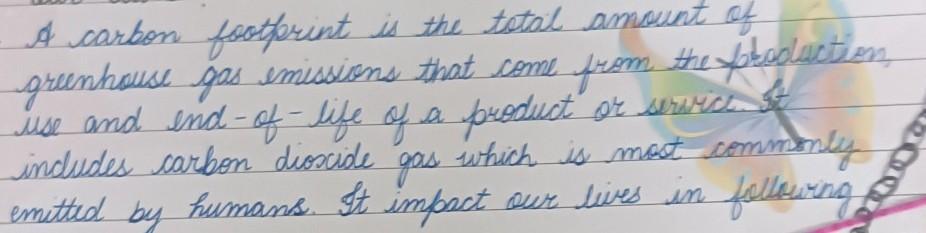 A carbon footprint is the total amount of
greenhouse gas emissions that come from the production,
use and end-of-life of a product or service. It
includes carbon dioxide gas which is most commonly
emitted by humans. It impact our lives in following